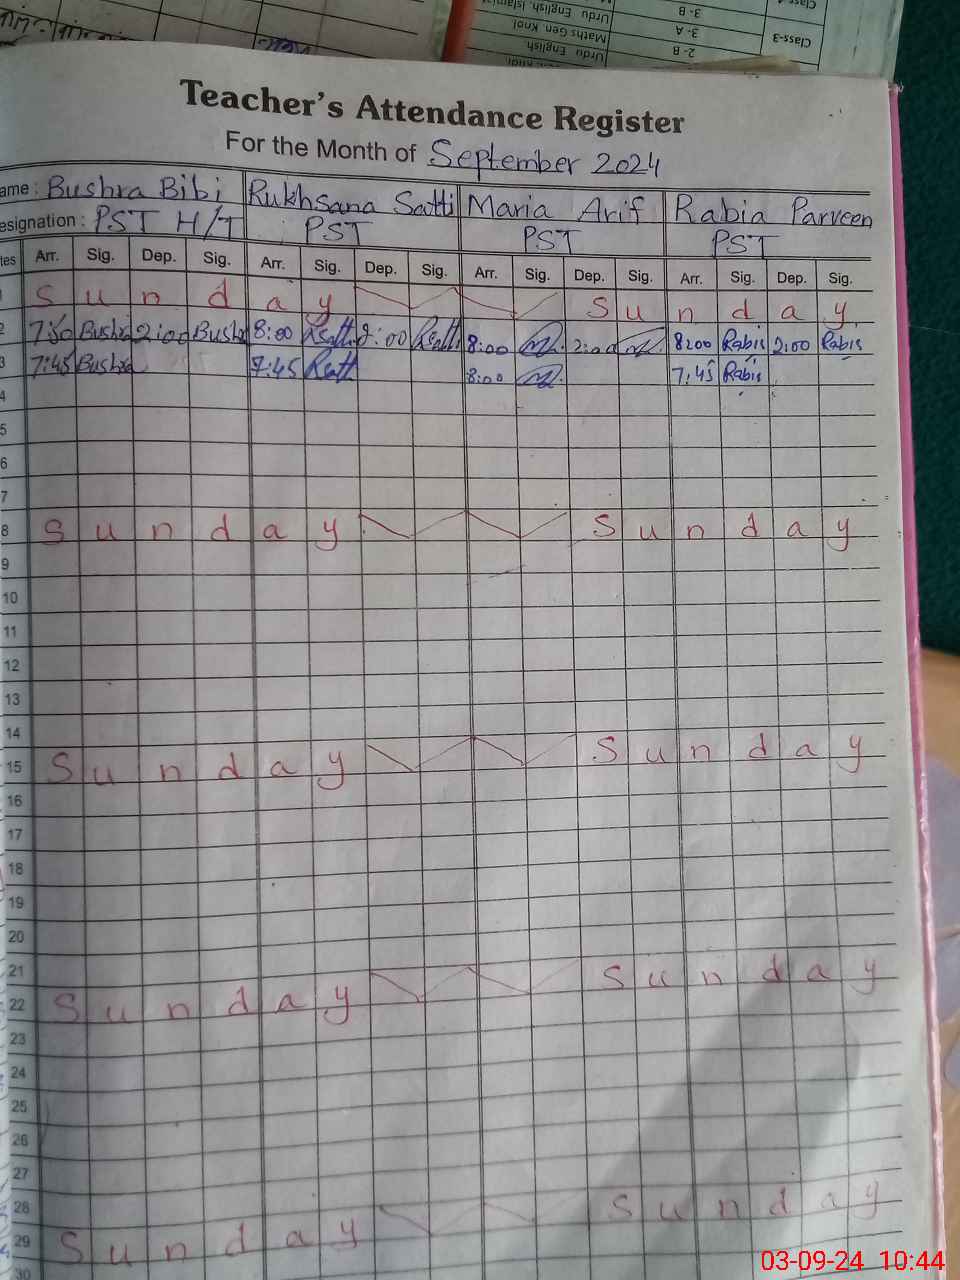 Class-3
3- B
3- A
2- B
Urdu English Islamiat
Maths Gen Knol
Urdu English
Teacher's Attendance Register
For the Month of September 2024
ame : Bushra Bibi Rukhsana Satti Maria Arif Rabia Parveen
esignation : PST H/T PST PST PST
tes Arr. Sig. Dep. Sig. Arr. Sig. Dep. Sig. Arr. Sig. Dep. Sig. Arr. Sig. Dep. Sig.
1 S u n d a y S u n d a y
2 7:50 Bushra 2:00 Bushra 8:00 RSatti 2:00 RSatti 8:00 2:00 8:00 Rabia 2:00 Rabia
3 7:45 Bushra 7:45 RSatti 8:00 7:45 Rabia
4
5
6
7
8 S u n d a y S u n d a y
9
10
11
12
13
14
15 S u n d a y S u n d a y
16
17
18
19
20
21
22 S u n d a y S u n d a y
23
24
25
26
27
28
29 S u n d a y S u n d a y
30
03-09-24 10:44